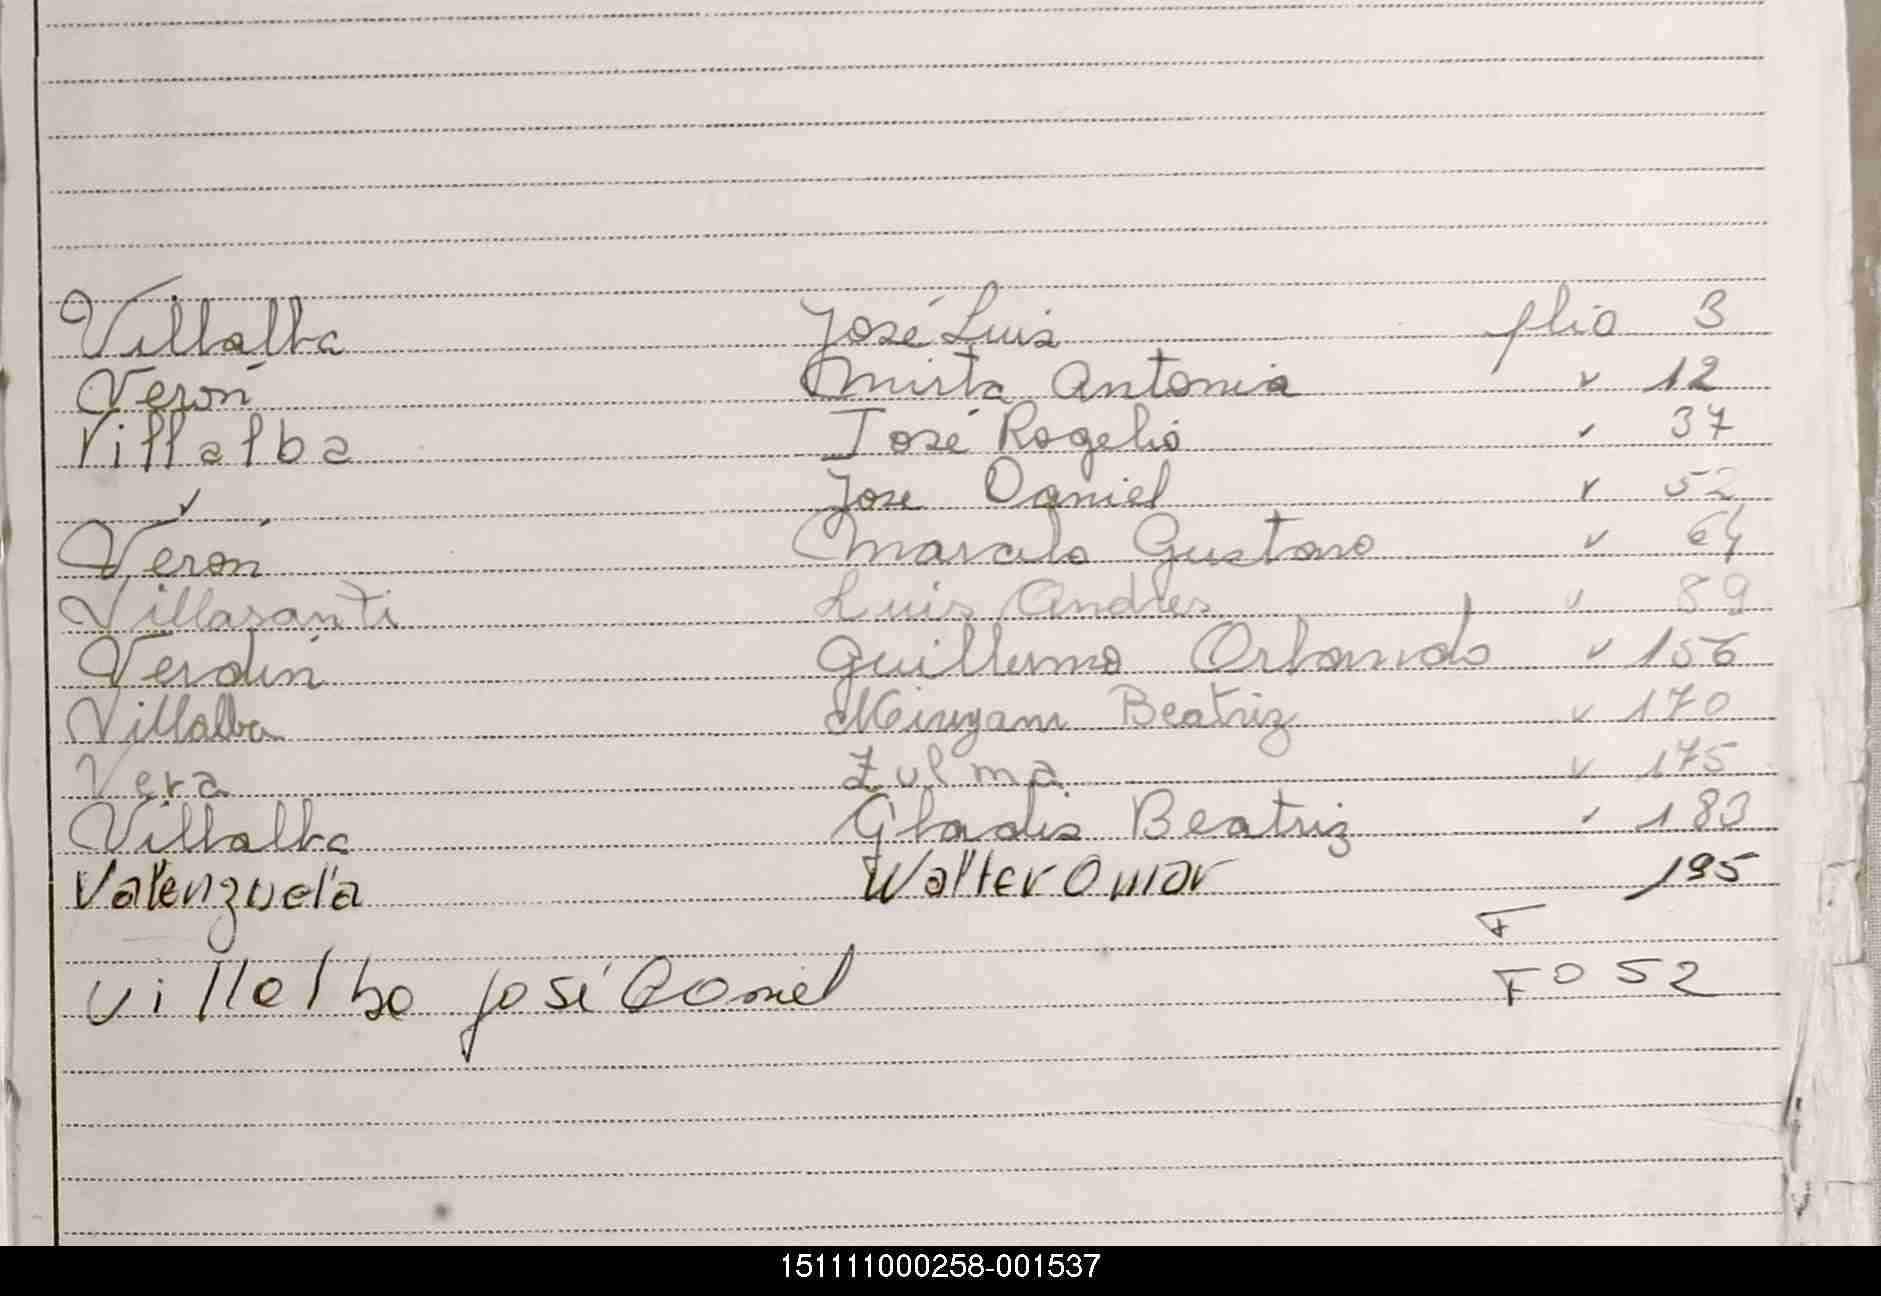 Villalba José Luis folio 3
Verón Mirta Antonia " 12
Villalba José Rogelio " 37
" Jose Daniel " 52
Verón Marcelo Gustavo " 64
Villasanti Luis Andres " 89
Verdún Guillermo Orlando " 156
Villalba Miryam Beatriz " 170
Vera Zulma " 175
Villalba Gladis Beatriz " 183
Valenzuela Walter Omar 195
F
Villalba José Daniel Fo 52
151111000258-001537